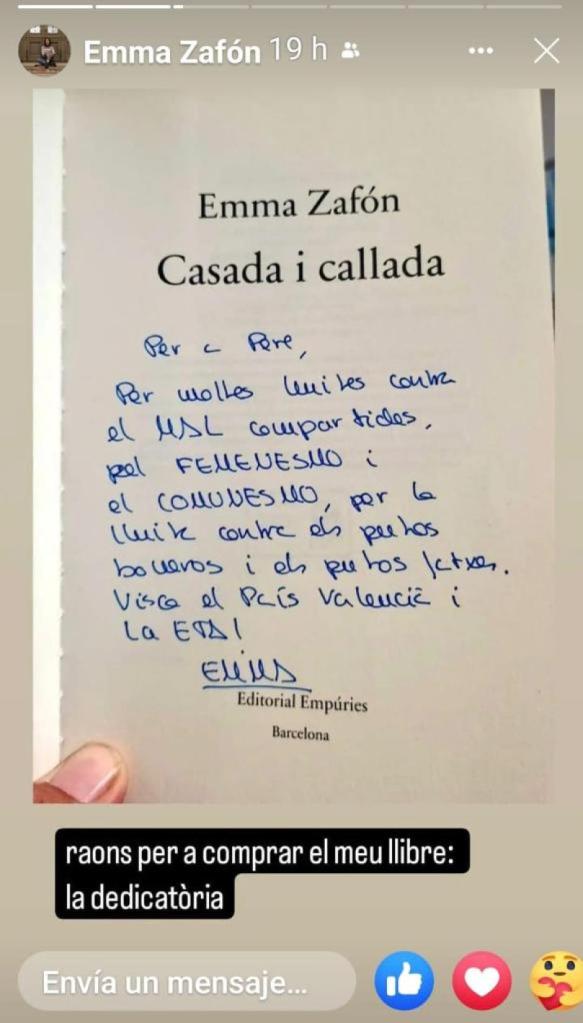 Emma Zafón 19 h
Emma Zafón
Casada i callada
Per a Pere,
Per moltes lluites contra
el MAL compartides,
pel FEMENESMO i
el COMUNESMO, per la
lluita contra els putos
boueros i els putos fatxes.
Visca el País Valencià i
la ETA!
EMMA
Editorial Empúries
Barcelona
raons per a comprar el meu llibre:
la dedicatòria
Envía un mensaje...